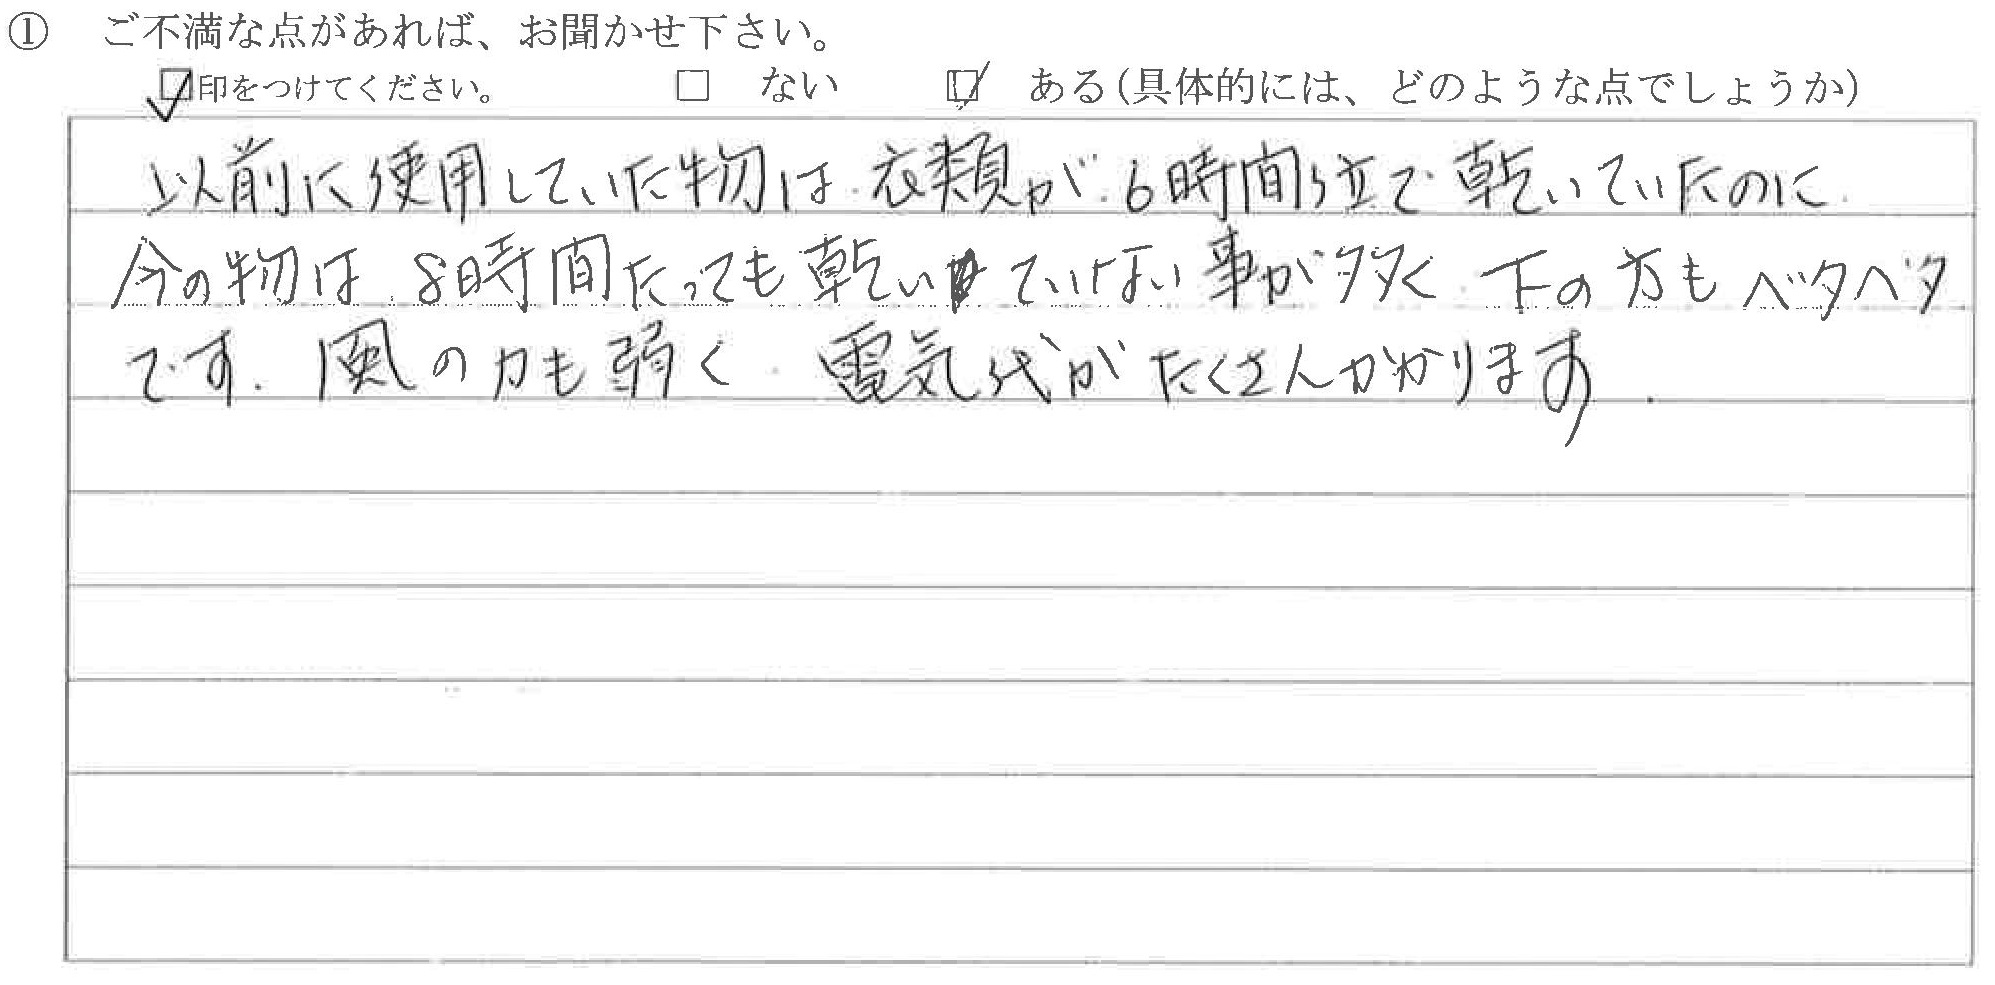 ① ご不満な点があれば、お聞かせ下さい。
☑印をつけてください。 □ ない ☑ ある(具体的には、どのような点でしょうか)
以前に使用していた物は衣類が6時間位で乾いていたのに
今の物は8時間たっても乾いていない事が多く下の方もベタベタ
です.風の力も弱く電気代がたくさんかかります.